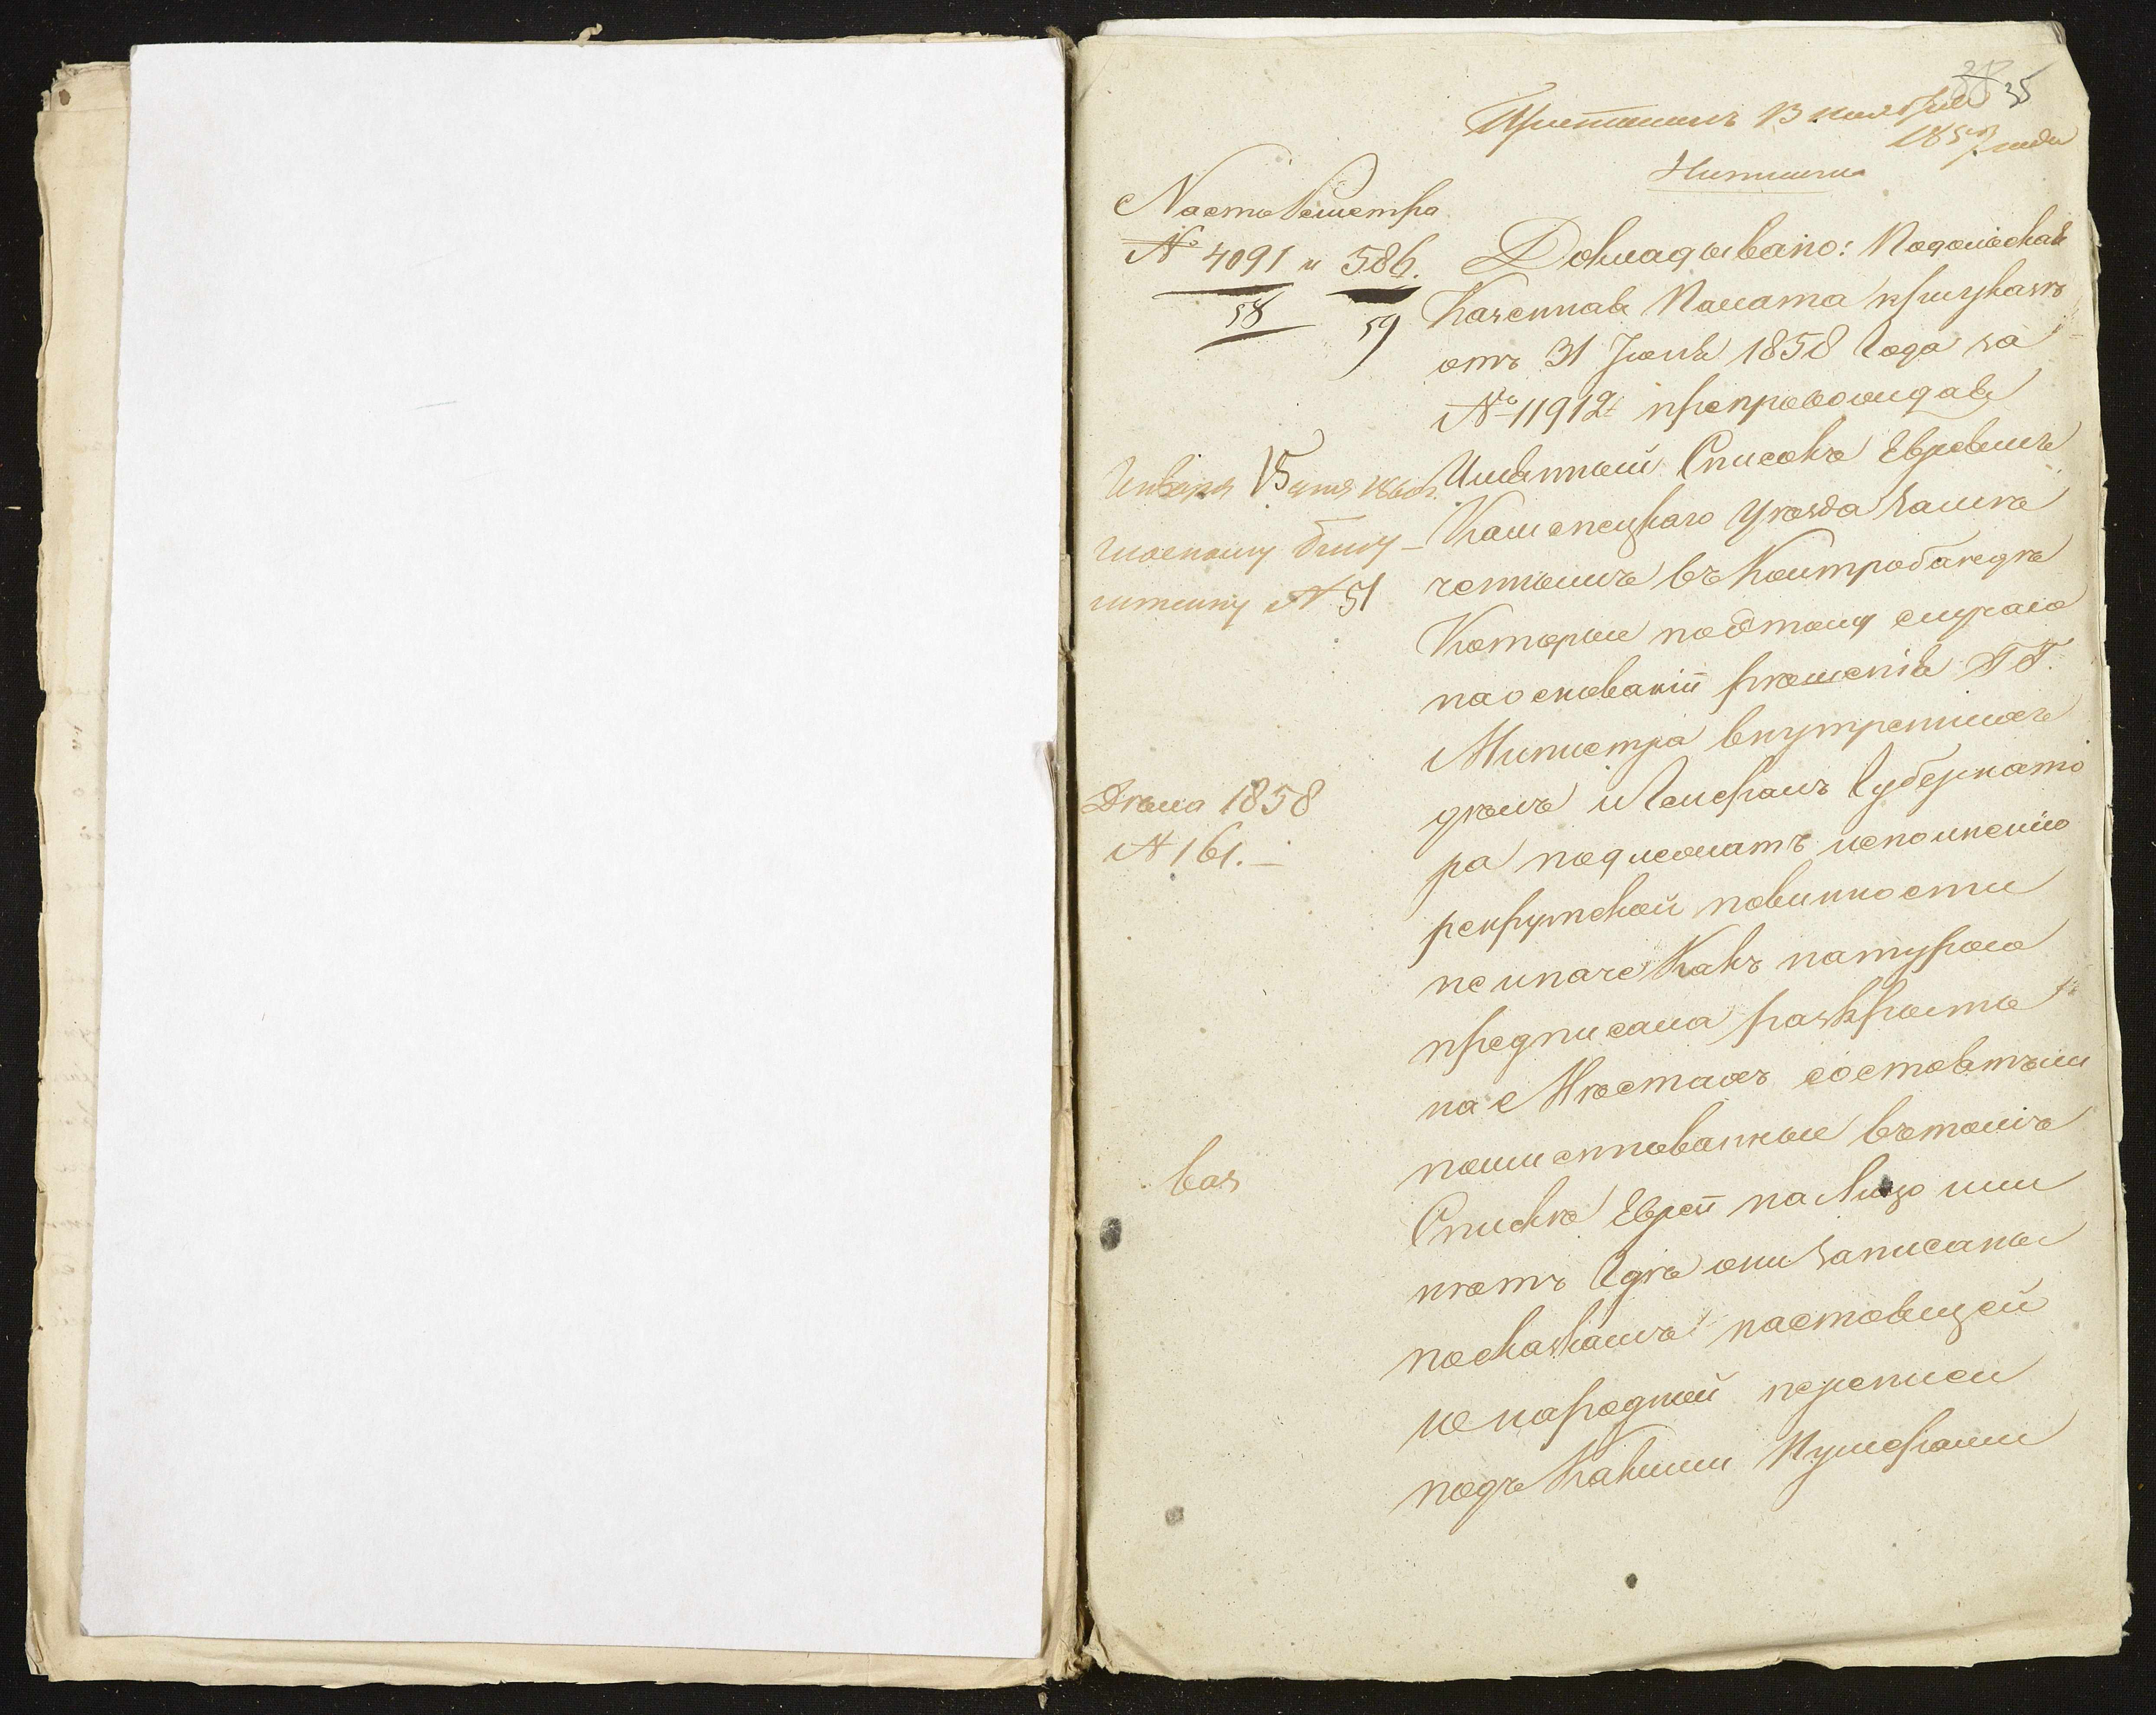 35
13 ноября
185 года
Насто Реистра
№ 4091 и 586.
58 59
Докладывано: Подольская
Казенная Палата при указѣ
отъ 31 Іюля 1858 Года за
№ 11912 препровождая
Имянный Списокъ Евреямъ
Каменецкаго Уѣзда замѣ
ченнымъ въ Контробандѣ
Которые поэтому случаю
на основаніи рѣшенія ГГ.
Министра внутреннихъ
дѣлъ и Генералъ Губернато
ра подлежатъ исполненію
рекрутской повинности
не иначе Какъ натурою
предписала разкрыть
на Мѣстахъ состоятъ ли
поименованные въ томъ
Спискѣ Евреи на Лицо или
нѣтъ Гдѣ они записаны
по сказкамъ настоящей
ю народной переписи
подъ Какими Нумерами
Января 15 дня 1860 г.
№ 51
Дѣла 1858
№ 161.
вая